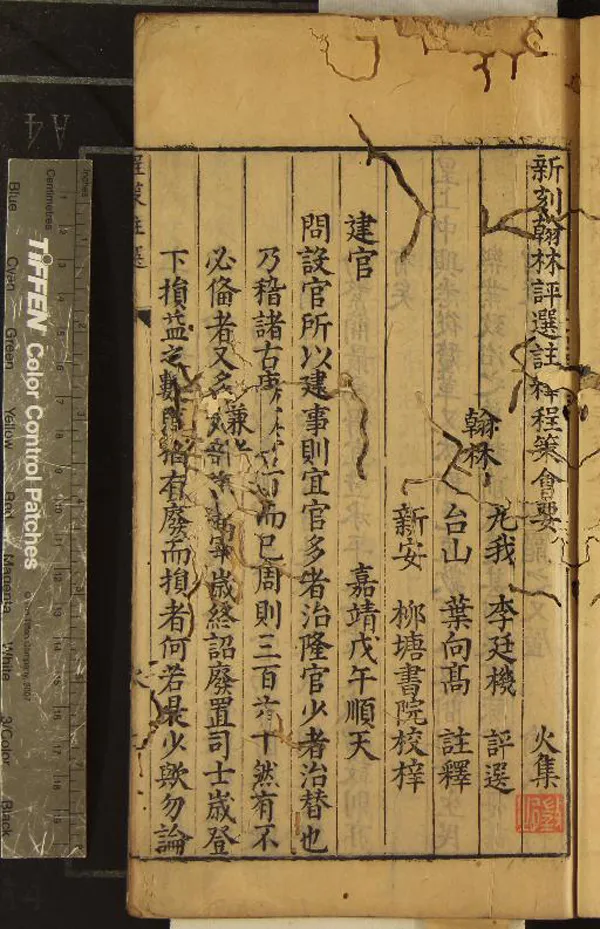 新刻翰林評選註釋程策會要 火集
翰林 九我 李廷機 評選
台山 葉向高 註釋
新安 柳塘書院校梓
建官 嘉靖戊午順天
問設官所以建事則宜官多者治隆官少者治替也
乃稽諸古唐 而已周則三百六十然有不
必俻者又多兼 冢宰歲終詔廢置司士歲登
下損益之數 有廢而損者何若是少歟勿論
A4
inches
Centimetres
TIFFEN Color Control Patches
© The Tiffen Company, 2007
Blue
Cyan
Green
Yellow
Red
Magenta
White
3/Color
Black